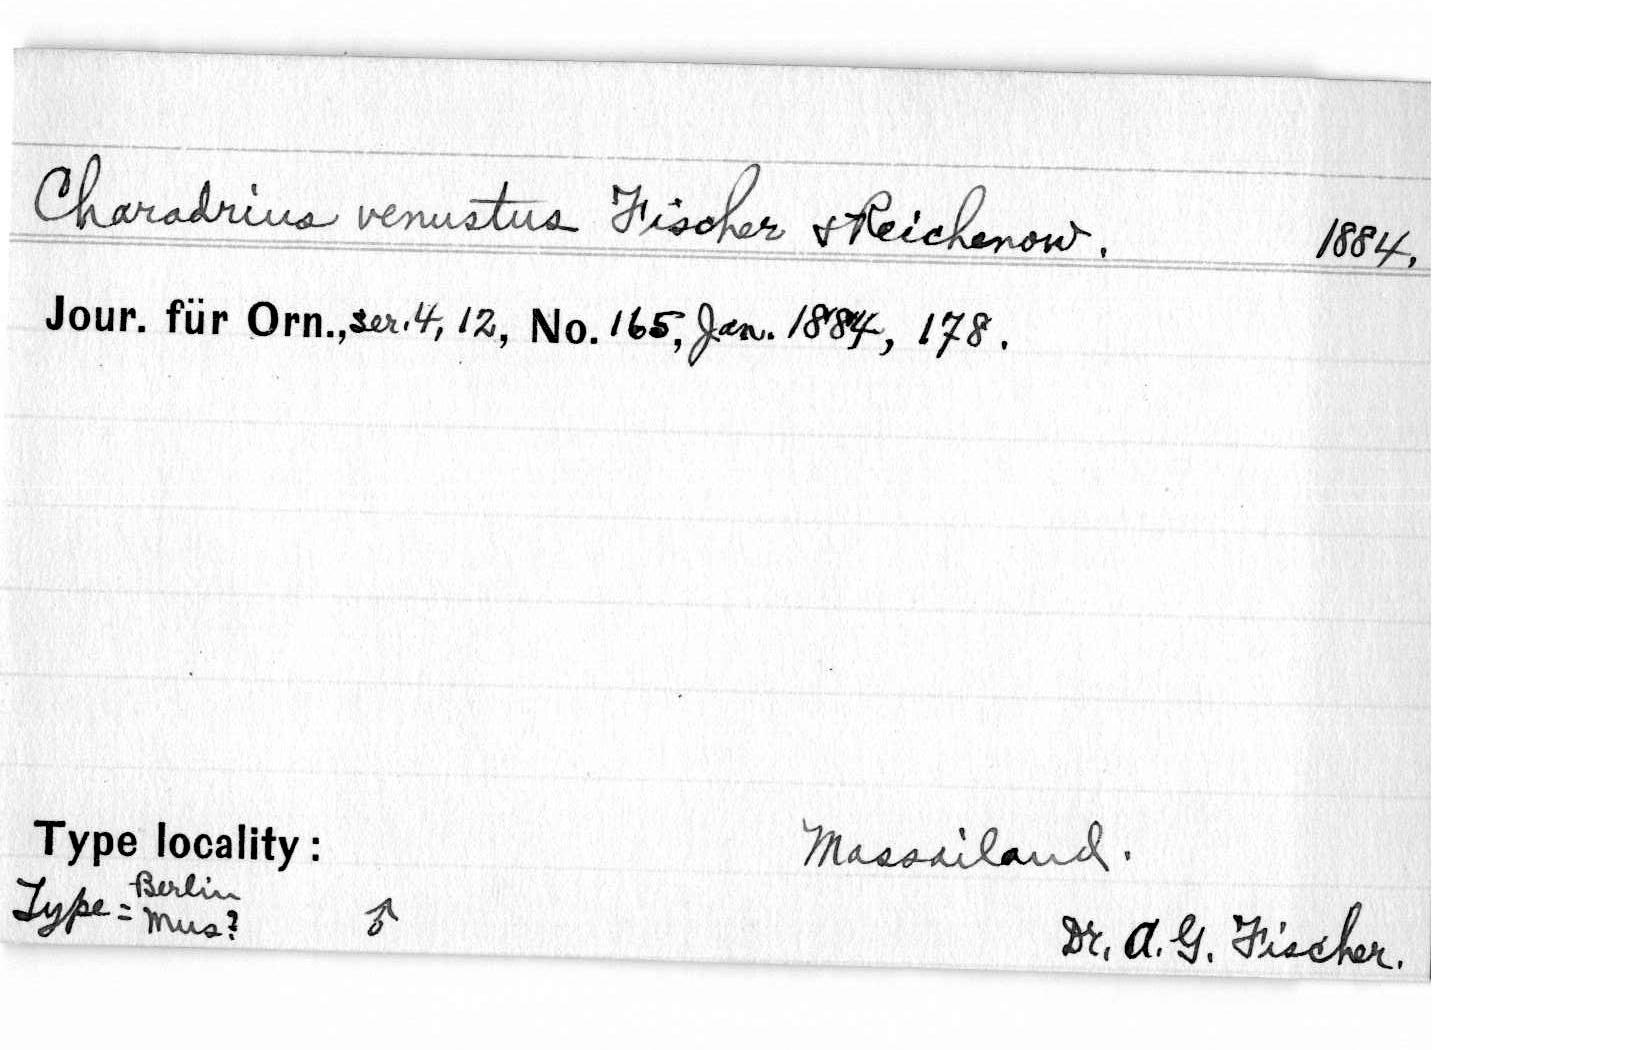 Charadrius venustus Fischer & Reichenow. 1884.
Jour. für Orn., ser. 4, 12, No. 165, Jan. 1884, 178.
Type locality: Massailand.
Type = Berlin Mus? ♂ Dr. A. G. Fischer.